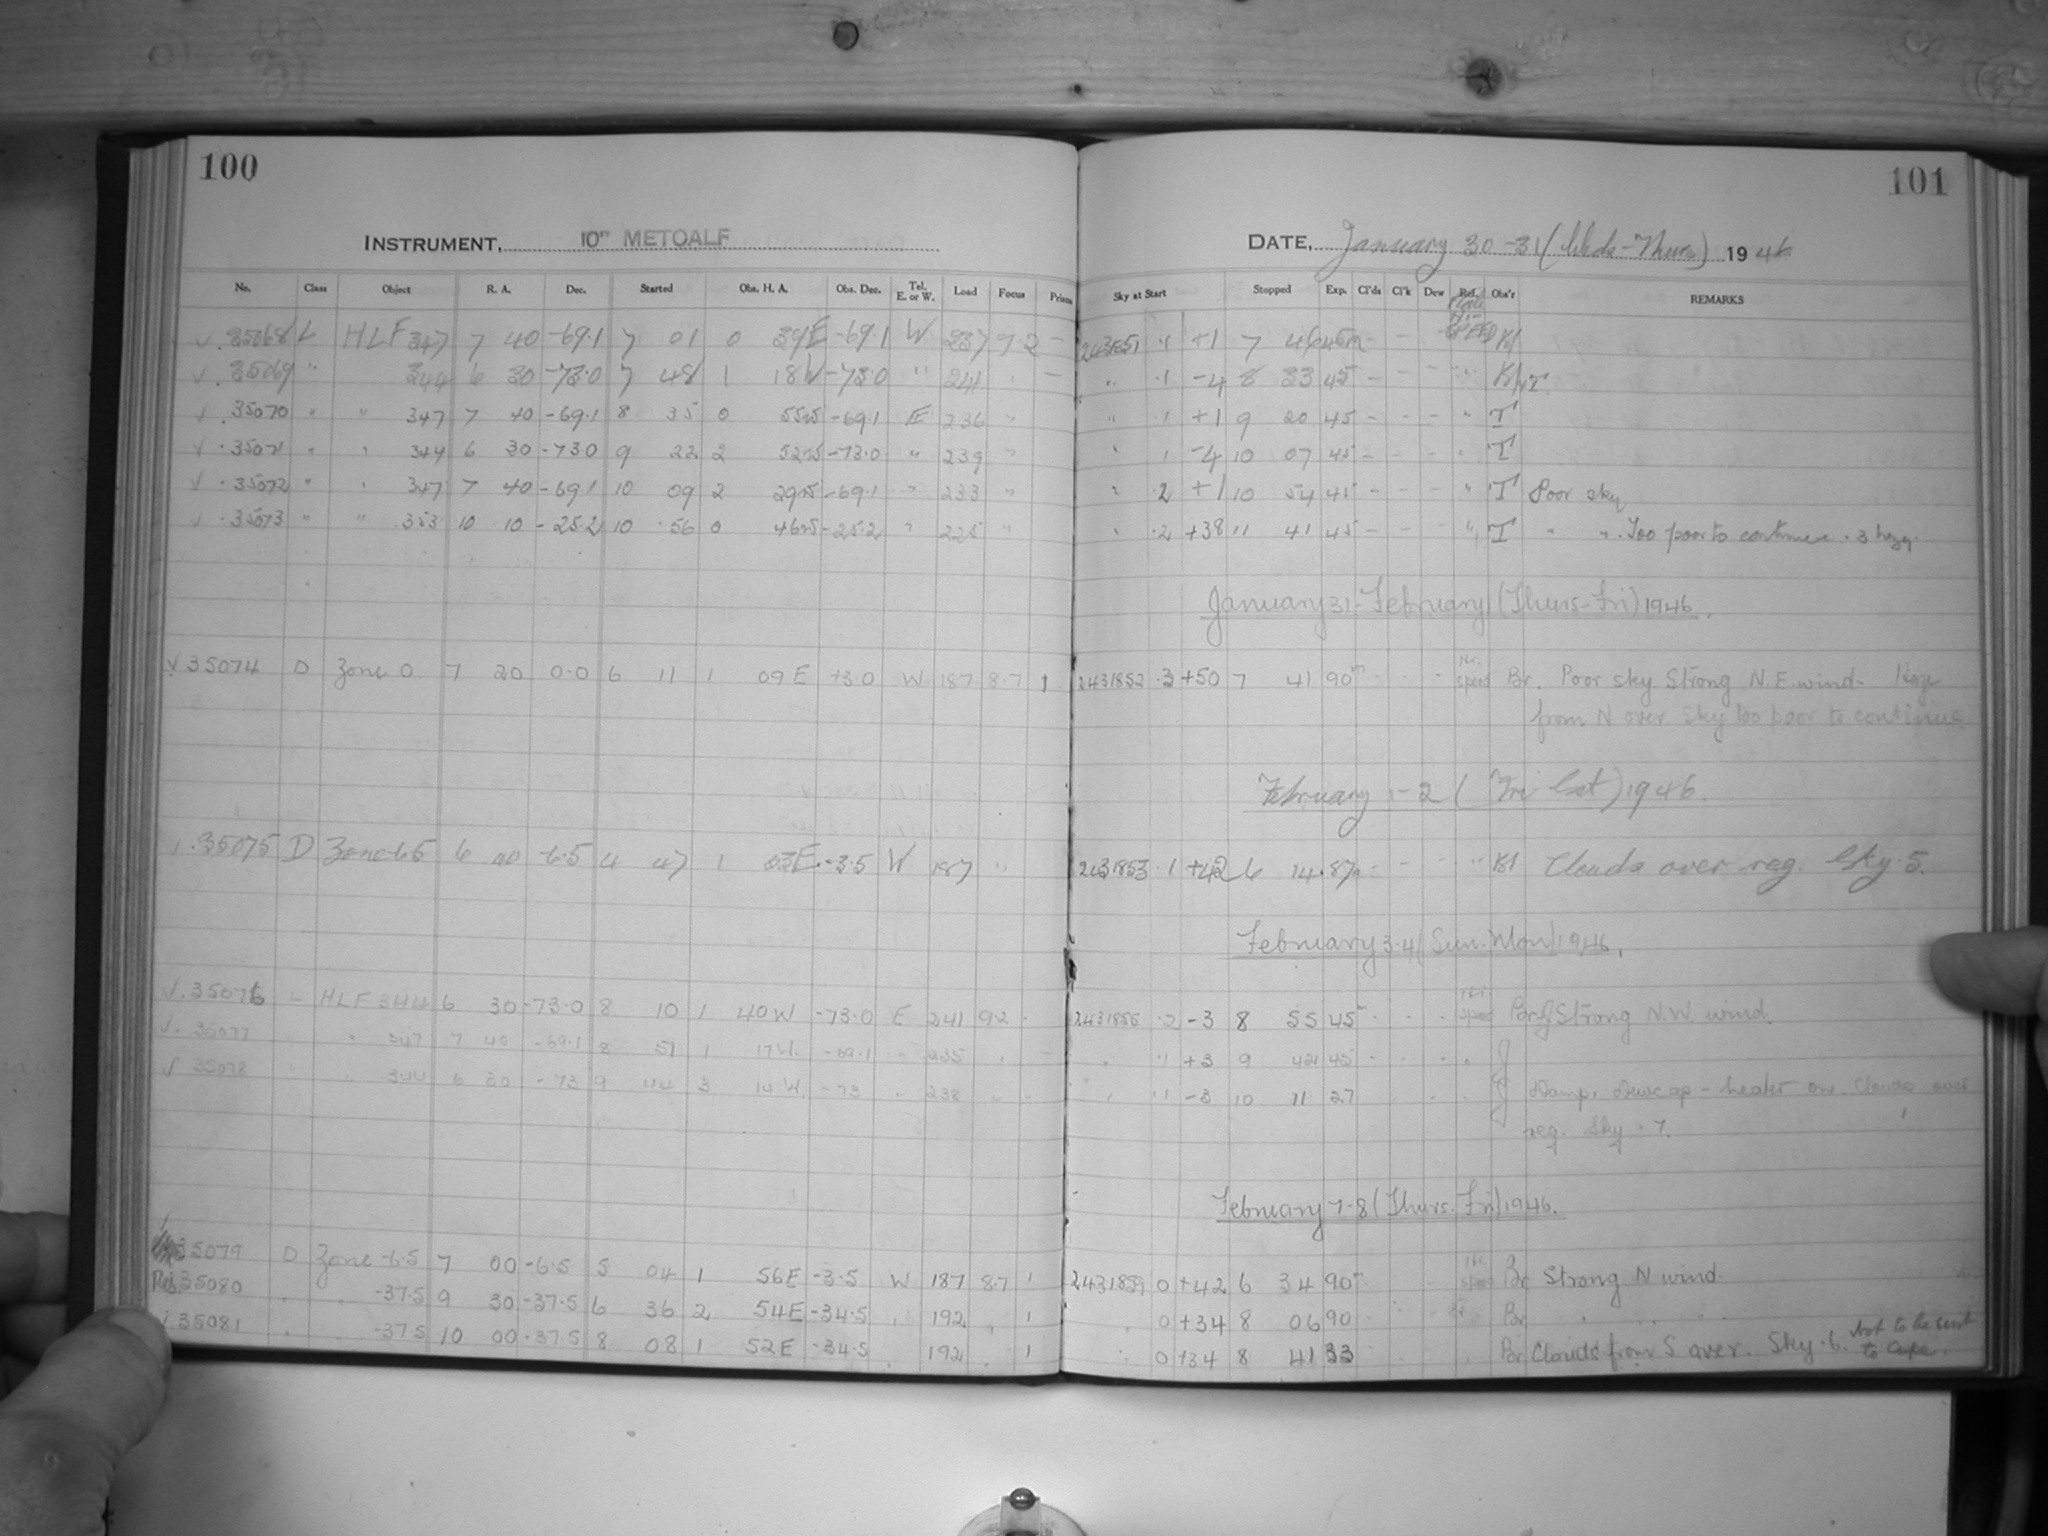 100
101
INSTRUMENT, 10" METCALF
DATE, January 30-31 (Weds-Thurs) 1946
No. Class Object R. A. Dec. Started Obs. H. A. Obs. Dec. Tel. E. or W. Load Focus Prisms Sky at Start Stopped Exp. Cl'ds Cl'k Dew Ref. Obs'r REMARKS
√ 35068 L HLF 347 7 40 -69.1 7 01 0 39E -69.1 W 237 9.2 - 2431851 .1 +1 7 46 45m - - SPEED
√ 35069 " 344 6 30 -73.0 7 48 1 18W -73.0 " 241 " - " .1 -4 8 33 45 - - - "
√ .35070 " " 347 7 40 -69.1 8 35 0 55W -69.1 E 236 " " 1 +1 9 20 45 - - - " T
√ .35071 " " 344 6 30 -73.0 9 22 2 52W -73.0 " 239 " " 1 -4 10 07 45 - - - " T
√ .35072 " " 347 7 40 -69.1 10 09 2 29W -69.1 " 233 " " .2 +1 10 54 45 - - - " T Poor sky
√ .35073 " " 353 10 10 -25.2 10 56 0 46W -25.2 " 225 " " .2 +38 11 41 45 - - - " T " " . Too poor to continue . 3 hazy.
January 31-February 1 (Thurs-Fri) 1946.
√ 35074 D Zone 0 7 20 0.0 6 11 1 09E +3.0 W 187 8.7 1 2431852 .3 +50 7 41 90m speed Br. Poor sky Strong N.E wind. Haze
from N over sky too poor to continue
February 1-2 (Fri Sat) 1946.
.35075 D Zone -6.5 6 40 -6.5 4 47 1 03E -3.5 W 187 " 2431853 .1 +42 6 14 87m - - " Clouds over reg. Sky .5.
February 3-4 (Sun-Mon) 1946.
√ .35076 L HLF 344 6 30 -73.0 8 10 1 40W -73.0 E 241 9.2 - 2431855 .2 -3 8 55 45m speed Strong N.W. wind.
√ .35077 " " 347 7 40 -69.1 8 57 1 17W. -69.1 " 235 " - " " +3 9 42 45 J
√ 35078 " " 344 6 30 -73 9 44 3 14W. -73 " 238 " - " " -3 10 11 27 J Damp. Dewcap - heater on. Clouds over
reg. Sky .7.
February 7-8 (Thurs-Fri) 1946.
35079 D Zone -6.5 7 00 -6.5 5 04 1 56E -3.5 W 187 8.7 1 2431859 0 +42 6 34 90m speed Br Strong N wind.
Rej. 35080 " " -37.5 9 30 -37.5 6 36 2 54E -34.5 " 192 " 1 " 0 +34 8 06 90 Br " " "
√ 35081 " " -37.5 10 00 -37.5 8 08 1 52E -34.5 " 192 " 1 " 0 +34 8 41 33 Br Clouds from S over. Sky .6. Not to be sent
to Cape.